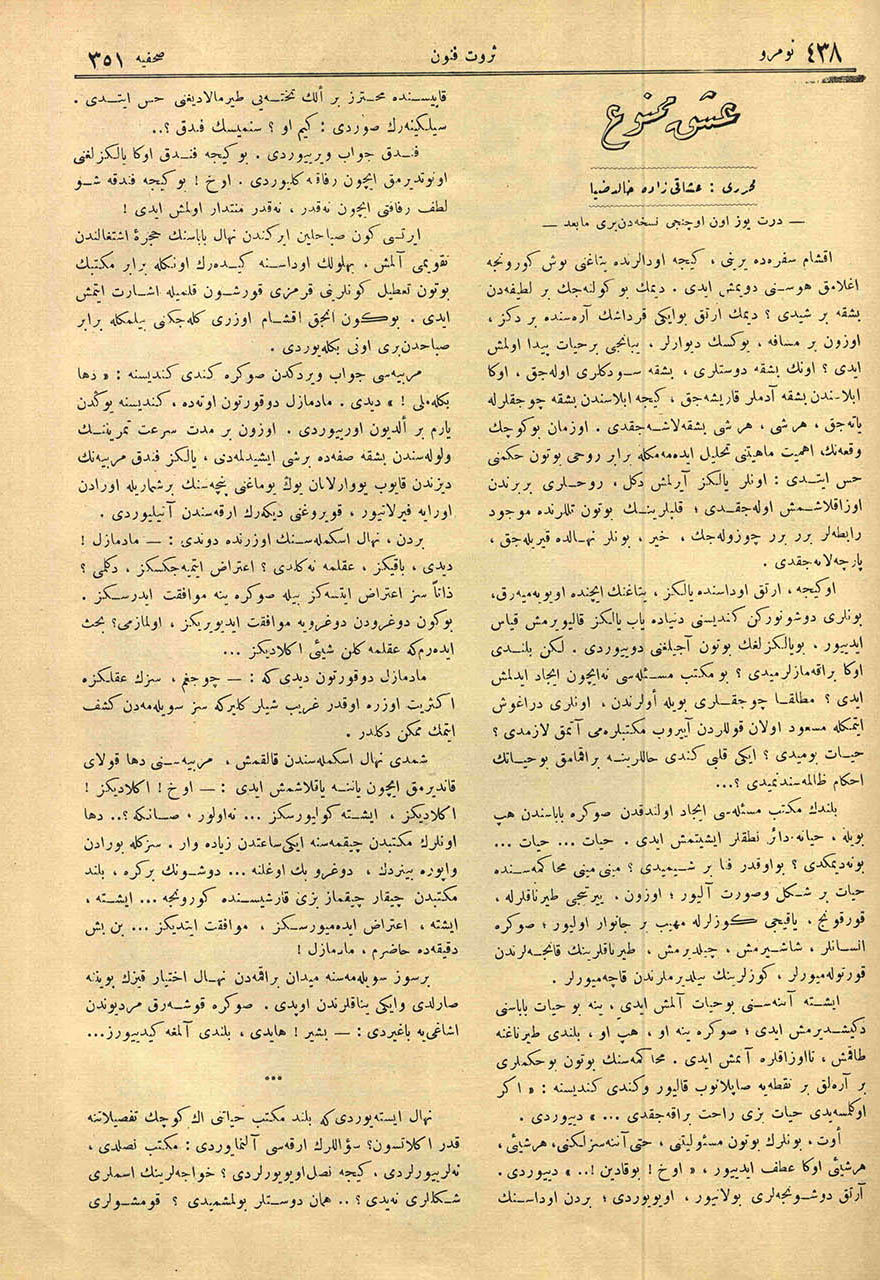 نومرو ٤٣٨
ثروت فنون
صحفیه ٣٥١
عشق ممنوع
محرری : عشاقی زاده خالد ضیا
— درت یوز اون اوچنجی نسخه‌دن‌بری مابعد —
اقشام سفره‌ده یرینی ، کیجه اودالرنده یتاغنی بوش کورونجه
اغلامق هوسنی دویمش ایدی . دیمك بو کولنه‌جك بر لطیفه‌دن
بشقه بر شیدی ؟ دیمك ارتق بوایکی قرداشك آره‌سنده بر دکز ،
اوزون بر مسافه ، یوکسك دیوارلر ، یبانجی برحیات پیدا اولمش
ایدی ؟ اونك بشقه دوستلری ، بشقه سودکلری اوله‌جق ، اوکا
ابلاسندن بشقه آدملر قاریشه‌جق ، کیجه ابلاسندن بشقه چوجقلرله
یاته‌جق ، هرشی ، هرشی بشقه‌لاشه‌جقدی . اوزمان بوکوچك
وقعه‌نك اهمیت ماهیتنی تحلیل ایده‌مه‌مکله برابر روحی بوتون حکمنی
حس ایتدی : اونلر یالکز آیرلمش دکل ، روحلری بربرندن
اوزاقلاشمش اوله‌جقدی ؛ قلبلرینك بوتون تللرنده موجود
رابطه‌لر برر برر چوزوله‌جك ، خیر ، بونلر نهالده قیریله‌جق ،
پارچه‌لانه‌جقدی .
اوکیجه ، ارتق اوداسنده یالکز ، یتاغنك ایچنده اویویه‌میه‌رق ،
بونلری دوشونورکن کندیسنی دنیاده یاپ یالکز قالیویرمش قیاس
ایدییور ، بویالکزلغك بوتون آجیلغنی دوییوردی . لکن بلندی
اوکا براقه‌مازلرمیدی ؟ بو مکتب مسئله‌سی نه‌ایچون ایجاد ایدلمش
ایدی ؟ مطلقا چوجقلری بویله أولرندن ، اونلری دراغوش
ایتمکله مسعود اولان قوللردن آییروب مکتبلره‌می آتمق لازمدی ؟
حیات بومیدی ؟ ایکی قلبی کندی حاللرینه براقمامق بوحیاتك
احکام ظالمه‌سندنمیدی ؟...
بلندك مکتب مسئله‌سی ایجاد اولندقدن صوکره باباسندن هپ
بویله ، حیاته‌دائر نطقلر ایشیتمش ایدی . حیات ... حیات ...
بونه‌دیمکدی ؟ بواوقدر فنا بر شیمیدی ؟ مینی‌مینی محاکمه‌سنده
حیات بر شکل وصورت آلیور ؛ اوزون ، ییرتیجی طیرناقلرله ،
قورقونج ، یاقیجی کوزلرله مهیب بر جانوار اولیور ؛ صوکره
انسانلر ، شاشیرمش ، چیلدیرمش ، طیرناقلرینك قانجه‌لرندن
قورتوله‌میورلر ، کوزلرینك ییلدیرملرندن قاچه‌میورلر .
ایشته آننه‌سنی بوحیات آلمش ایدی ، ینه بو حیات باباسنی
دکیشدیرمش ایدی ؛ صوکره ینه او ، هپ او ، بلندی طیرناغنه
طاقمش ، تااوزاقلره آتمش ایدی . محاکمه‌سنك بوتون بوحکملری
بر آره‌لق بر نقطه‌یه صاپلانوب قالیور وکندی کندیسنه : « اکر
اوکلسه‌یدی حیات بزی راحت براقه‌جقدی ... » دییوردی .
أوت ، بونلرك بوتون مسئولیتنی ، حتی آننه‌سزلکنی، هرشیئی ،
هرشیئی اوکا عطف ایدییور ، « اوخ ! بوقادین !.. » دییوردی .
آرتق دوشونجه‌لری بولانیور ، اویویوردی ؛ بردن اوداسنك
قاپیسنده محترز بر ألك تخته‌یی طیرمالادیغنی حس ایتدی .
سیلکینه‌رك صوردی : کیم او ؟ سنمیسك فندق ؟..
فندق جواب ویرییوردی . بوکیجه فندق اوکا یالکزلغنی
اونوتدیرمق ایچون رفاقته کلیوردی . اوخ ! بوکیجه فندقه شو
لطف رفاقتی ایچون نه‌قدر ، نه‌قدر منتدار اولمش ایدی !
ایرتسی کون صباحلین ایرکندن نهال باباسنك حجرۀ اشتغالندن
تقویمی آلمش ، بهلولك اوداسنه کیده‌رك اونكله برابر مکتبك
بوتون تعطیل کونلرینی قرمزی قورشون قلمیله اشارت ایتمش
ایدی . بوکون آنجق اقشام اوزری کله‌جکنی بیلمکله برابر
صباحدن‌بری اونی بکله‌یوردی .
مربیه‌سی جواب ویردکدن صوکره کندی کندیسنه : « دها
بکله‌ملی ! » دیدی . مادمازل دوقورتون اوتده ، کندیسنه یوکدن
یارم بر ألدیون اورییوردی . اوزون بر مدت سرعت تمریننك
ولوله‌سندن بشقه صفه‌ده برشی ایشیدلمه‌دی ، یالکز فندق مربیه‌نك
دیزندن قاپوب یووارلانان یوك یوماغنی پنچه‌سنك برشماریله اورادن
اورایه فیرلاتیور ، قویروغنی دیکه‌رك ارقه‌سندن آتیلیوردی .
بردن ، نهال اسکمله‌سنك اوزرنده دوندی : — مادمازل !
دیدی ، باقیکز ، عقلمه نه‌کلدی ؟ اعتراض ایتمیه‌جکسکز ، دکلمی ؟
ذاتاً سز اعتراض ایتسه‌کز بیله صوکره ینه موافقت ایدرسکز .
بوکون دوغرودن دوغرویه موافقت ایدیویریکز ، اولمازمی؟ بحث
ایده‌رم‌که عقلمه کلن شیئی اکلادیکز ...
مادمازل دوقورتون دیدی که : — چوجغم ، سزك عقلکزه
اکثریت اوزره اوقدر غریب شیلر کلیرکه سز سویله‌مه‌دن کشف
ایتمك ممکن دکلدر .
شمدی نهال اسکمله‌سندن قالقمش ، مربیه‌سنی دها قولای
قاندیرمق ایچون یاننه یاقلاشمش ایدی : — اوخ ! اکلادیکز !
اکلادیکز ، ایشته کولیورسکز ... نه‌اولور ، صانکه ؟.. دها
اونلرك مکتبدن چیقمه‌سنه ایکی‌ساعتدن زیاده وار . سزکله بورادن
واپوره بینردك ، دوغرو بك اوغلنه ... دوشونك برکره ، بلند
مکتبدن چیقار چیقماز بزی قارشیسنده کورونجه ... ایشته ،
ایشته ، اعتراض ایده‌میورسکز ، موافقت ایتدیکز ... بن بش
دقیقه‌ده حاضرم ، مادمازل !
برسوز سویله‌مه‌سنه میدان براقمه‌دن نهال اختیار قیزك بویننه
صارلدی وایکی یناقلرندن اوپدی . صوکره قوشه‌رق مردیوندن
اشاغی‌یه باغیردی : — بشیر ! هایدی ، بلندی آلمغه کیدییورز...
***
نهال ایسته‌یوردی که بلند مکتب حیاتنی اك کوچك تفصیلاتنه
قدر اکلاتسون؟ سؤاللرك ارقه‌سی آلنمایوردی : مکتب نصلدی ،
نه‌لرییورلردی ، کیجه نصل‌اویویورلردی ؟ خواجه‌لرینك اسملری
شکللری نه‌یدی ؟ .. همان دوستلر بولمشمیدی ؟ قومشولری